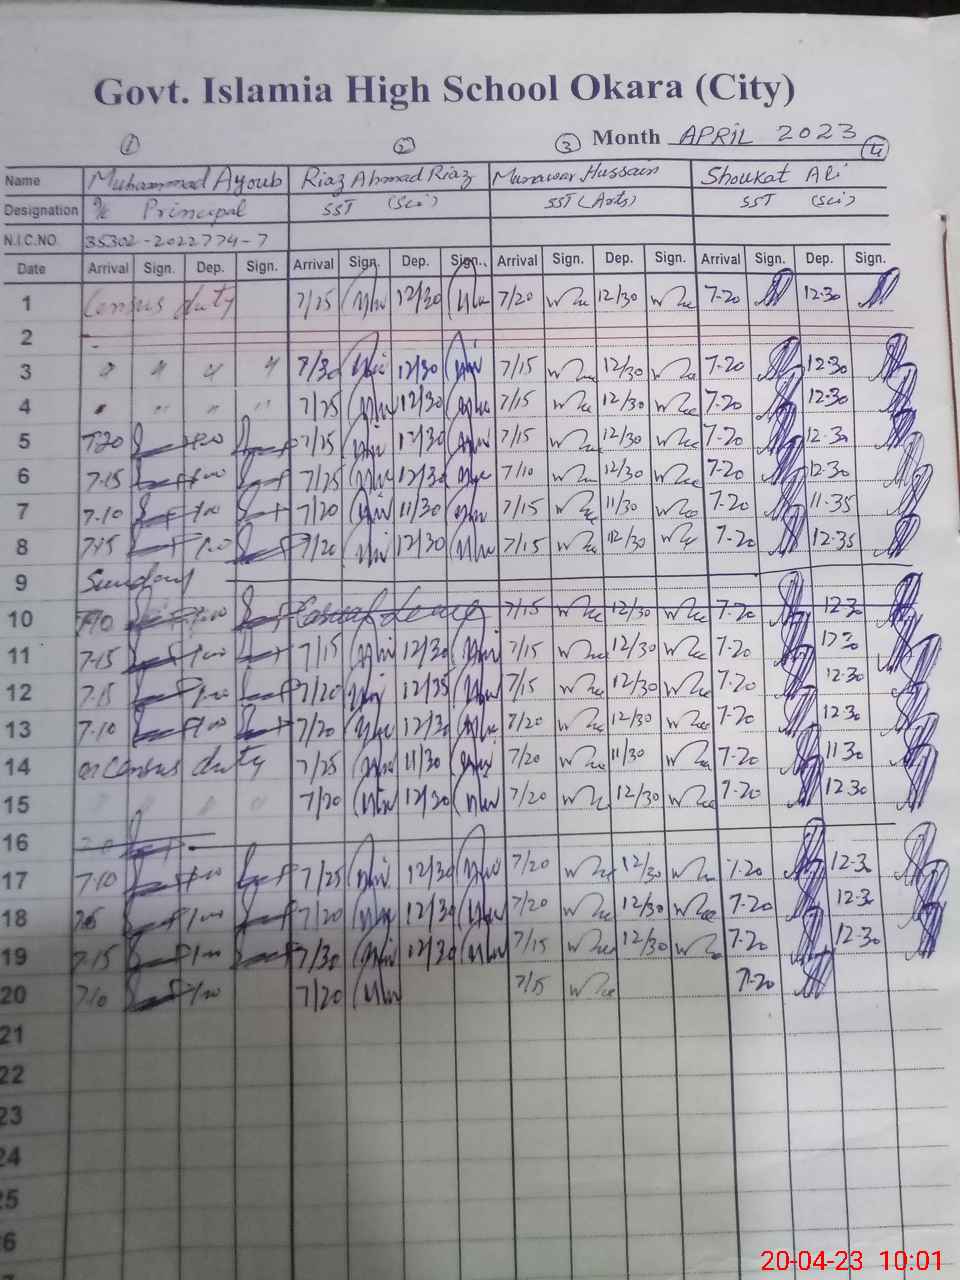 Govt. Islamia High School Okara (City)
1 2 3 Month APRIL 2023 4
Name Muhammad Ayoub Riaz Ahmad Riaz Munawar Hussain Shoukat Ali
Designation Principal SST (Sci) SST (Arts) SST (Sci)
N.I.C.NO. 35302-2022774-7
Date Arrival Sign. Dep. Sign. Arrival Sign. Dep. Sign. Arrival Sign. Dep. Sign. Arrival Sign. Dep. Sign.
1 Census duty 7/25 12/30 7/20 12/30 7-20 12-30
2
3 " " " " 7/30 12/30 7/15 12/30 7-20 12-30
4 " " " 7/25 12/30 7/15 12/30 7-20 12-30
5 7-20 7/25 12/30 7/15 12/30 7-20 12-30
6 7-15 7/25 12/30 7/10 12/30 7-20 12-30
7 7-10 7/20 11/30 7/15 11/30 7-20 11-35
8 7-15 7/20 12/30 7/15 12/30 7-20 12-35
9 Sunday
10 Casual Leave 7/15 12/30 7-20 12-30
11 7-15 7/15 12/30 7/15 12/30 7-20
12 7-15 7/20 12/35 7/15 12/30 7-20 12-30
13 7-10 7/20 12/30 7/20 12/30 7-20 12-30
14 on Census duty 7/25 11/30 7/20 11/30 7-20 11 30
15 7/20 12/30 7/20 12/30 7-20 12-30
16
17 7-10 7/25 12/30 7/20 12/30 7-20 12-30
18 7/20 12/30 7/20 12/30 7-20 12-30
19 7-15 7/30 12/30 7/15 12/30 7-20 12-30
20 7/20 7/15 7-20
21
22
23
24
25
26
20-04-23 10:01